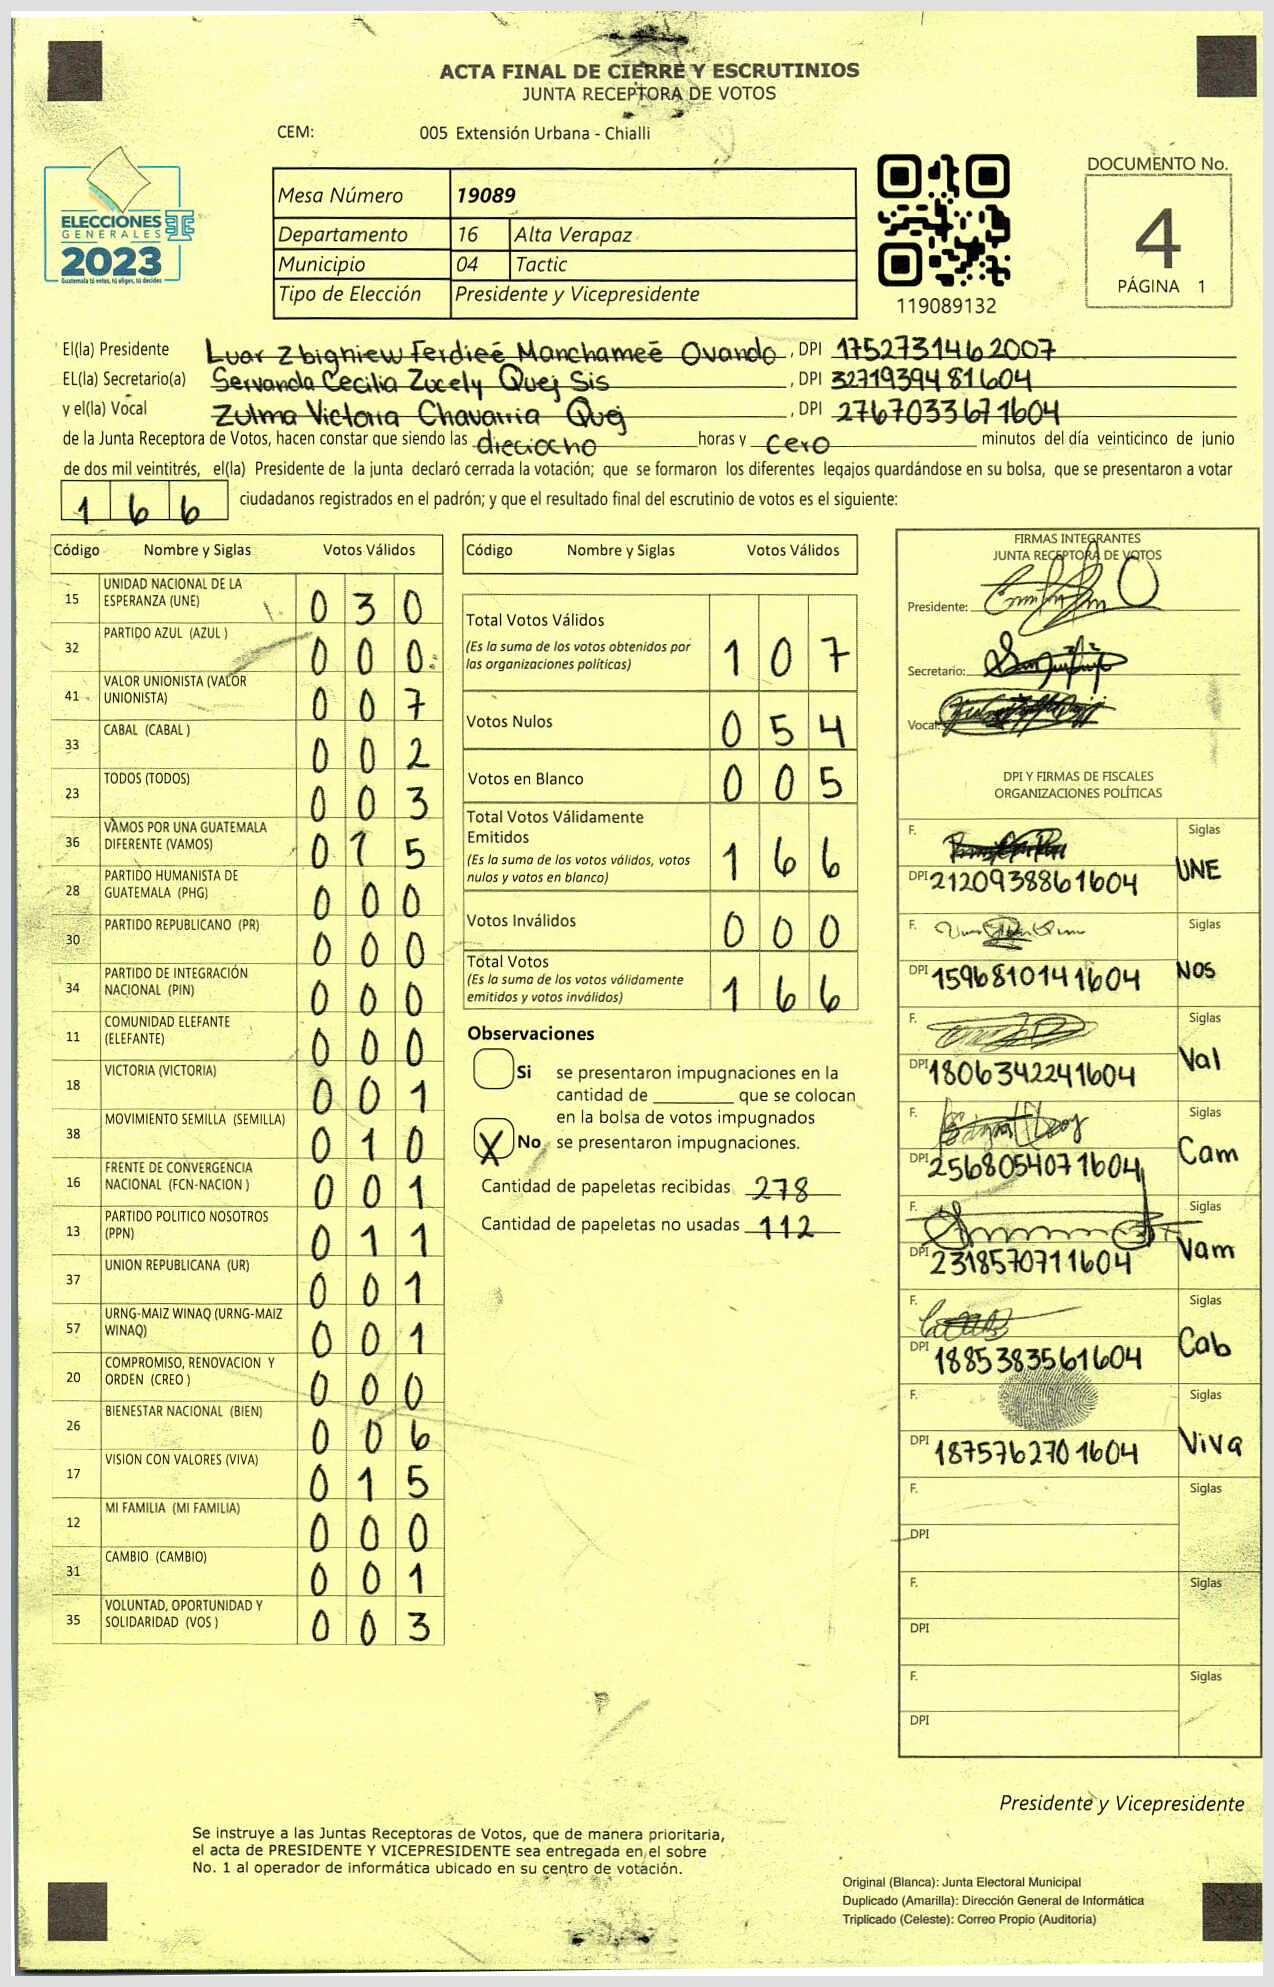 ACTA FINAL DE CIERRE Y ESCRUTINIOS
JUNTA RECEPTORA DE VOTOS
CEM: 005 Extensión Urbana - Chialli
ELECCIONES
GENERALES
2023
Guatemala tú votas, tú eliges, tú decides
Mesa Número 19089
Departamento 16 Alta Verapaz
Municipio 04 Tactic
Tipo de Elección Presidente y Vicepresidente
119089132
DOCUMENTO No.
4
PÁGINA 1
El(la) Presidente Luar Zbigniew Ferdieé Manchameé Ovando, DPI 1752731462007
EL(la) Secretario(a) Servanda Cecilia Zucely Quej Sis, DPI 3271939481604
y el(la) Vocal Zulma Victoria Chavarria Quej, DPI 2767033671604
de la Junta Receptora de Votos, hacen constar que siendo las dieciocho horas y cero minutos del día veinticinco de junio
de dos mil veintitrés, el(la) Presidente de la junta declaró cerrada la votación; que se formaron los diferentes legajos guardándose en su bolsa, que se presentaron a votar
166 ciudadanos registrados en el padrón; y que el resultado final del escrutinio de votos es el siguiente:
Código Nombre y Siglas Votos Válidos
15 UNIDAD NACIONAL DE LA ESPERANZA (UNE) 030
32 PARTIDO AZUL (AZUL ) 000
41 VALOR UNIONISTA (VALOR UNIONISTA) 007
33 CABAL (CABAL ) 002
23 TODOS (TODOS) 003
36 VAMOS POR UNA GUATEMALA DIFERENTE (VAMOS) 015
28 PARTIDO HUMANISTA DE GUATEMALA (PHG) 000
30 PARTIDO REPUBLICANO (PR) 000
34 PARTIDO DE INTEGRACIÓN NACIONAL (PIN) 000
11 COMUNIDAD ELEFANTE (ELEFANTE) 000
18 VICTORIA (VICTORIA) 001
38 MOVIMIENTO SEMILLA (SEMILLA) 010
16 FRENTE DE CONVERGENCIA NACIONAL (FCN-NACION ) 001
13 PARTIDO POLITICO NOSOTROS (PPN) 011
37 UNION REPUBLICANA (UR) 001
57 URNG-MAIZ WINAQ (URNG-MAIZ WINAQ) 001
20 COMPROMISO, RENOVACION Y ORDEN (CREO ) 000
26 BIENESTAR NACIONAL (BIEN) 006
17 VISION CON VALORES (VIVA) 015
12 MI FAMILIA (MI FAMILIA) 000
31 CAMBIO (CAMBIO) 001
35 VOLUNTAD, OPORTUNIDAD Y SOLIDARIDAD (VOS ) 003
Código Nombre y Siglas Votos Válidos
Total Votos Válidos 107
(Es la suma de los votos obtenidos por
las organizaciones políticas)
Votos Nulos 054
Votos en Blanco 005
Total Votos Válidamente
Emitidos 166
(Es la suma de los votos válidos, votos
nulos y votos en blanco)
Votos Inválidos 000
Total Votos 166
(Es la suma de los votos válidamente
emitidos y votos inválidos)
Observaciones
Si se presentaron impugnaciones en la
cantidad de ________ que se colocan
en la bolsa de votos impugnados
X No se presentaron impugnaciones.
Cantidad de papeletas recibidas 278
Cantidad de papeletas no usadas 112
FIRMAS INTEGRANTES
JUNTA RECEPTORA DE VOTOS
Presidente:
Secretario:
Vocal:
DPI Y FIRMAS DE FISCALES
ORGANIZACIONES POLÍTICAS
F. Siglas
DPI 2120938861604 UNE
F. Siglas
DPI 1596810141604 NOS
F. Siglas
DPI 1806342241604 Val
F. Siglas
DPI 2568054071604 Cam
F. Siglas
DPI 2318570711604 Vam
F. Siglas
DPI 1885383561604 Cab
F. Siglas
DPI 1875762701604 Viva
F. Siglas
DPI
F. Siglas
DPI
F. Siglas
DPI
Presidente y Vicepresidente
Se instruye a las Juntas Receptoras de Votos, que de manera prioritaria,
el acta de PRESIDENTE Y VICEPRESIDENTE sea entregada en el sobre
No. 1 al operador de informática ubicado en su centro de votación.
Original (Blanca): Junta Electoral Municipal
Duplicado (Amarilla): Dirección General de Informática
Triplicado (Celeste): Correo Propio (Auditoria)